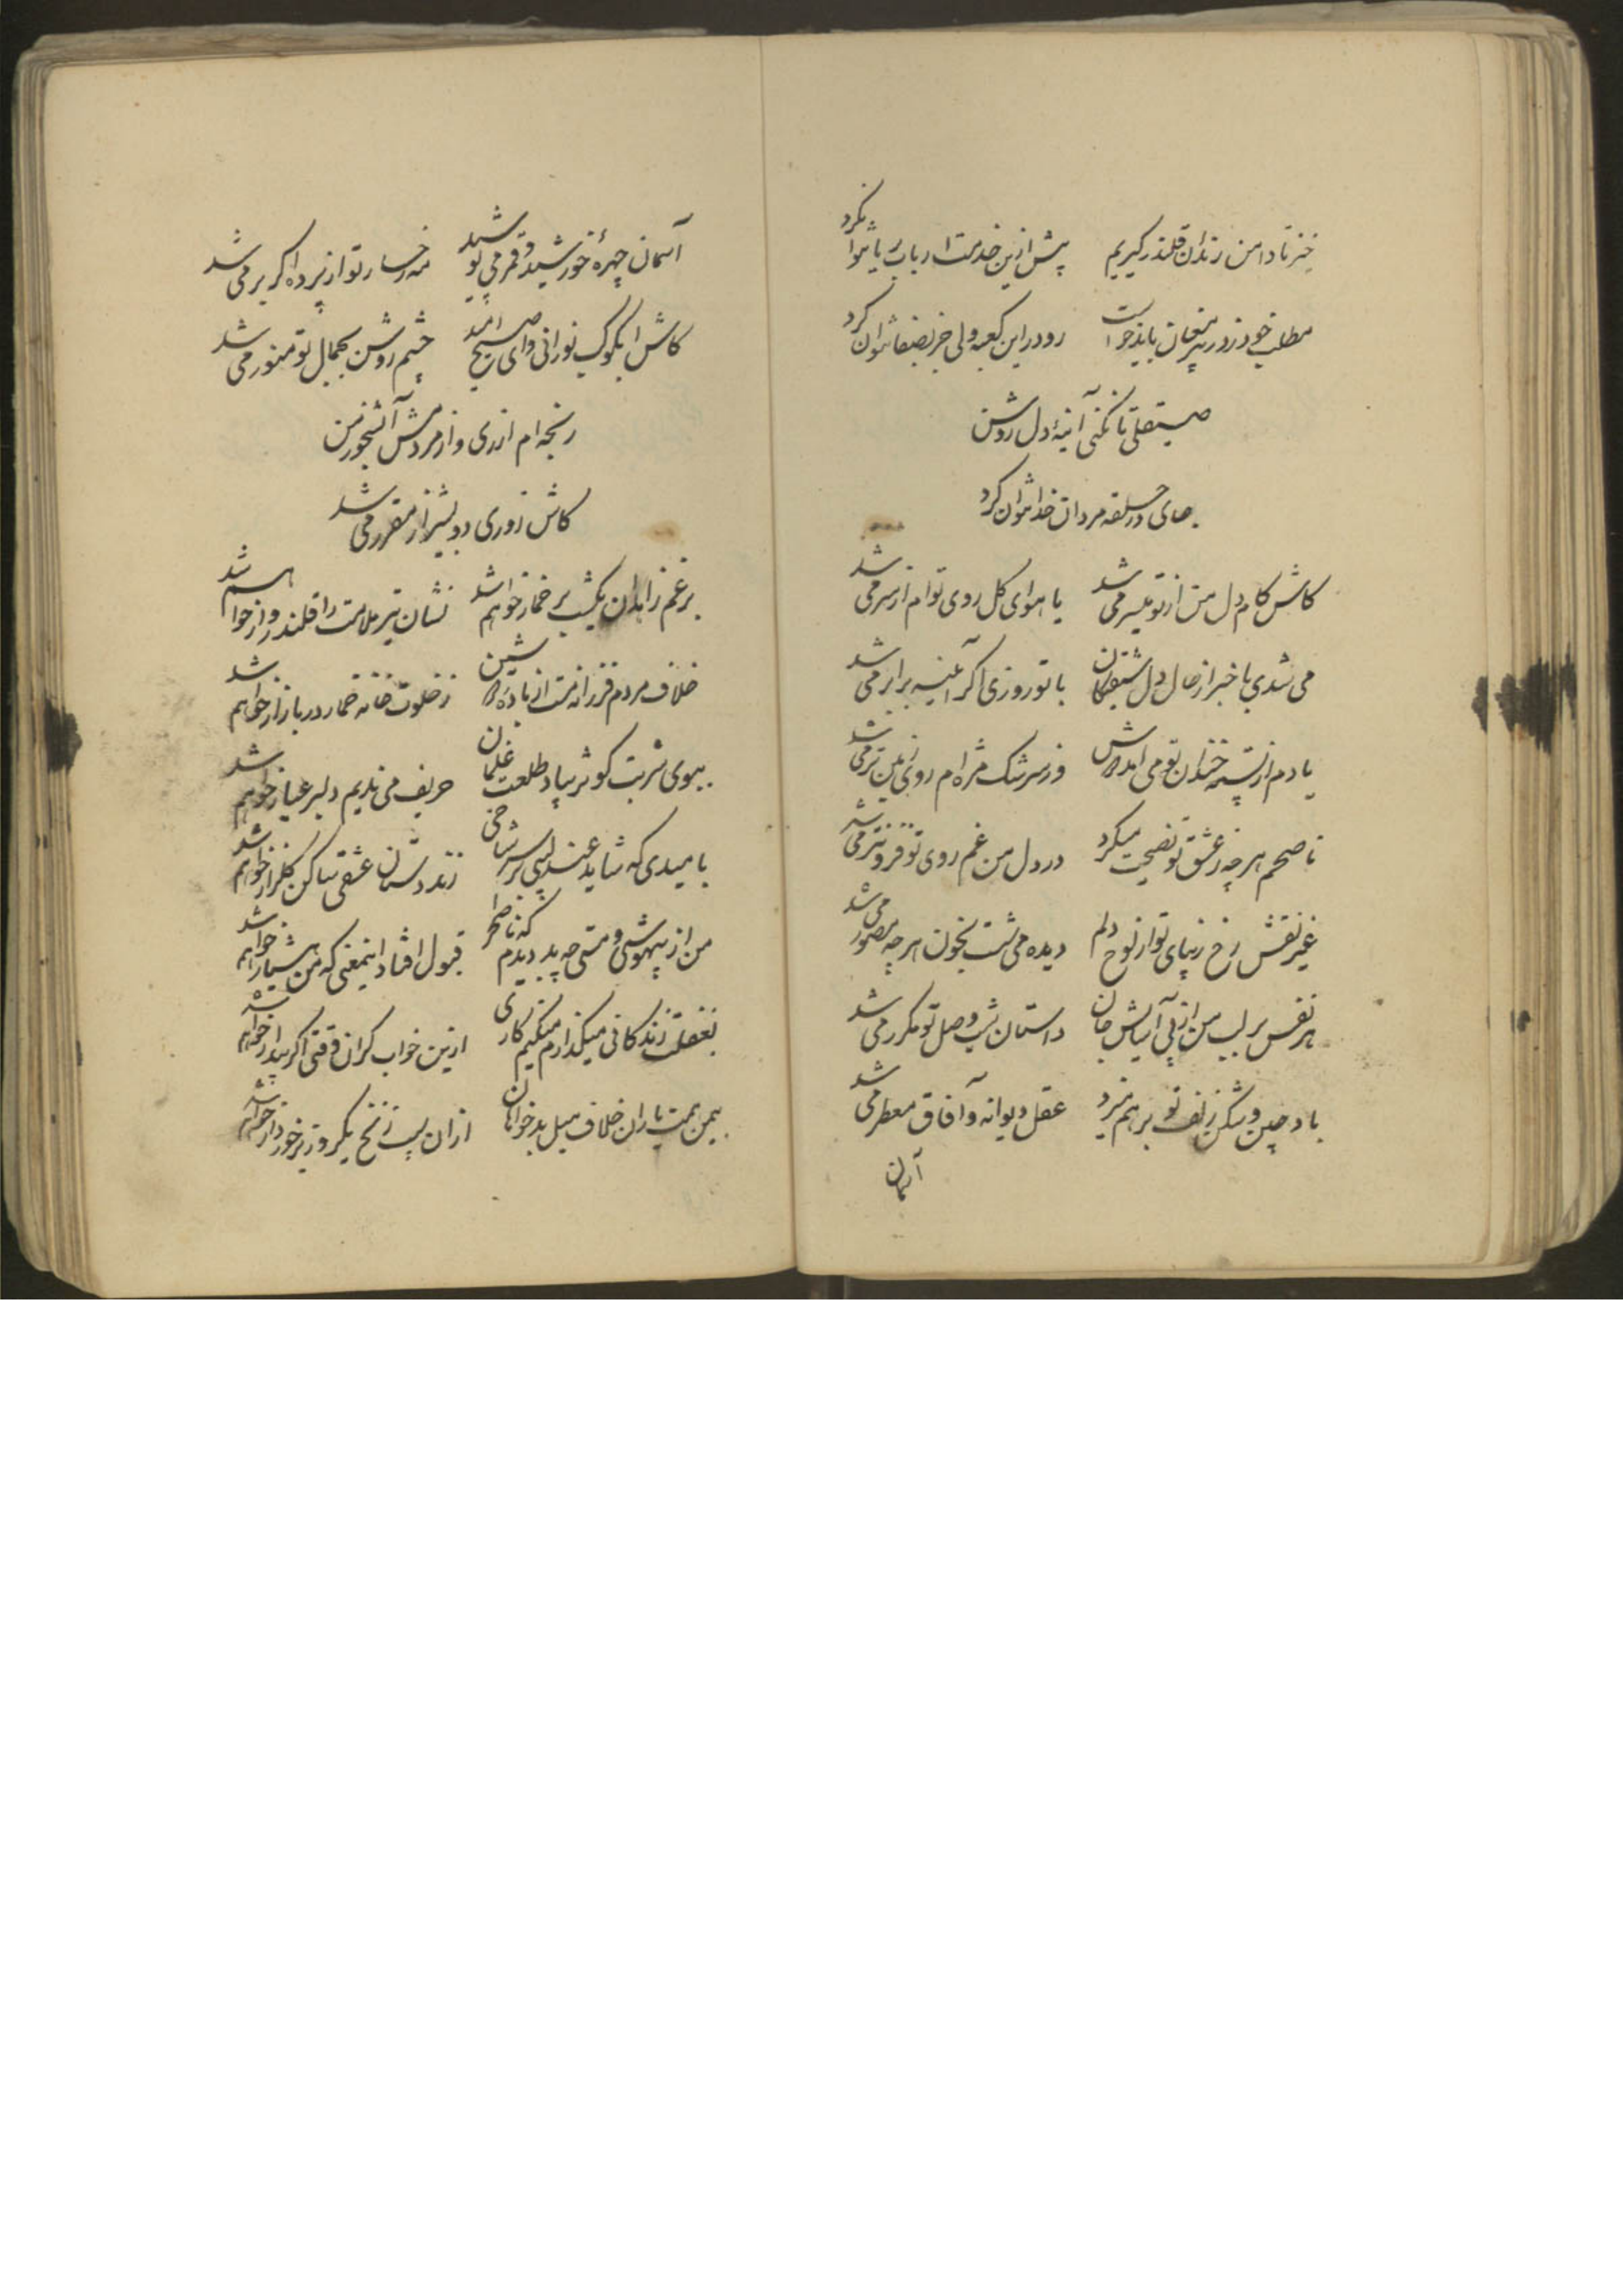 خیز تا دامن رندان قلندر گیریم پیش ازین خدمت ارباب ریا نتوان کرد
مطلب خود ز در پیر مغان باید خواست رو درین کعبه ولی جز بصفا نتوان کرد
صیقلی تا نکنی آینهٔ دل روشن
جای در حلقه مردان خدا نتوان کرد
کاش کام دل من از تو میسر می شد یا هوای گل روی توام از سر می شد
می شدی با خبر از حال دل شیفتگان با تو روزی اگر آئینه برابر می شد
یادم از پسته خندان تو می آمد و ز سرشک مژه ام روی زمین تر می شد
ناصحم هر چه ز عشق تو نصیحت میکرد در دل من غم روی تو فزونتر می شد
غیر نقش رخ زیبای تو از لوح دلم دیده می شست بخون هر چه مصور می شد
هر نفس بر لب من از پی آسایش جان داستان شب وصل تو مکرر می شد
باد چین و شکن زلف تو بر هم میزد عقل دیوانه و آفاق معطر می شد
آسمان
آسمان چهرهٔ خورشید و قمر می پوشید مه رخسار تو از پرده اگر بر می شد
کاش ای کوکب نورانی وای صبح امید چشم روشن بجمال تو منور می شد
رنجه ام از ری و از مردمش آتشخور من
کاش روزی دو بشیراز مقرر می شد
برغم زاهدان یکشب بر خمار خواهم شد نشان تیر ملامت را قلندروار خواهم شد
خلاف مردم فرزانه مست از باده نوشین ز خلوت خانه خمار در بازار خواهم شد
ببوی شربت کوثر بیاد طلعت غلمان حریف می ندیم دلبر عیار خواهم شد
بامیدی که شاید عندلیبی بر سر شاخی زند دستان عشقی ساکن گلزار خواهم شد
من از بیهوشی و مستی چه بد دیدم که ناصح را قبول افتاد اینمعنی که من هشیار خواهم شد
بغفلت زندگانی میگذارم میکنم کاری ازین خواب گران وقتی اگر بیدار خواهم شد
بیمن همت یاران خلاف میل بدخواهان از آن سیب زنخ یکروز برخوردار خواهم شد